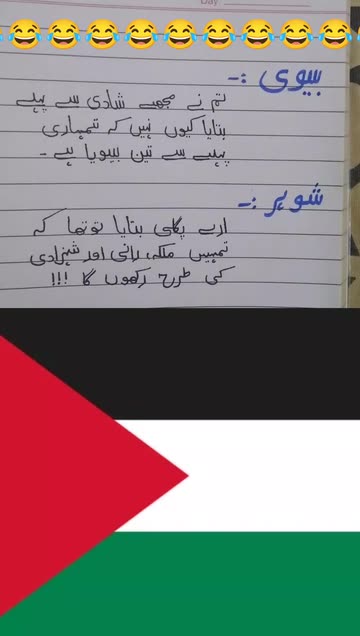 Day
بیوی :-
تم نے مجھے شادی سے پہلے
بتایا کیوں نہیں کہ تمہاری
پہلے سے تین بیویا ہے -
شوہر :-
ارے پگلی بتایا تو تھا کہ
تمہیں ملکہ، رانی اور شہزادی
کی طرح رکھوں گا !!!